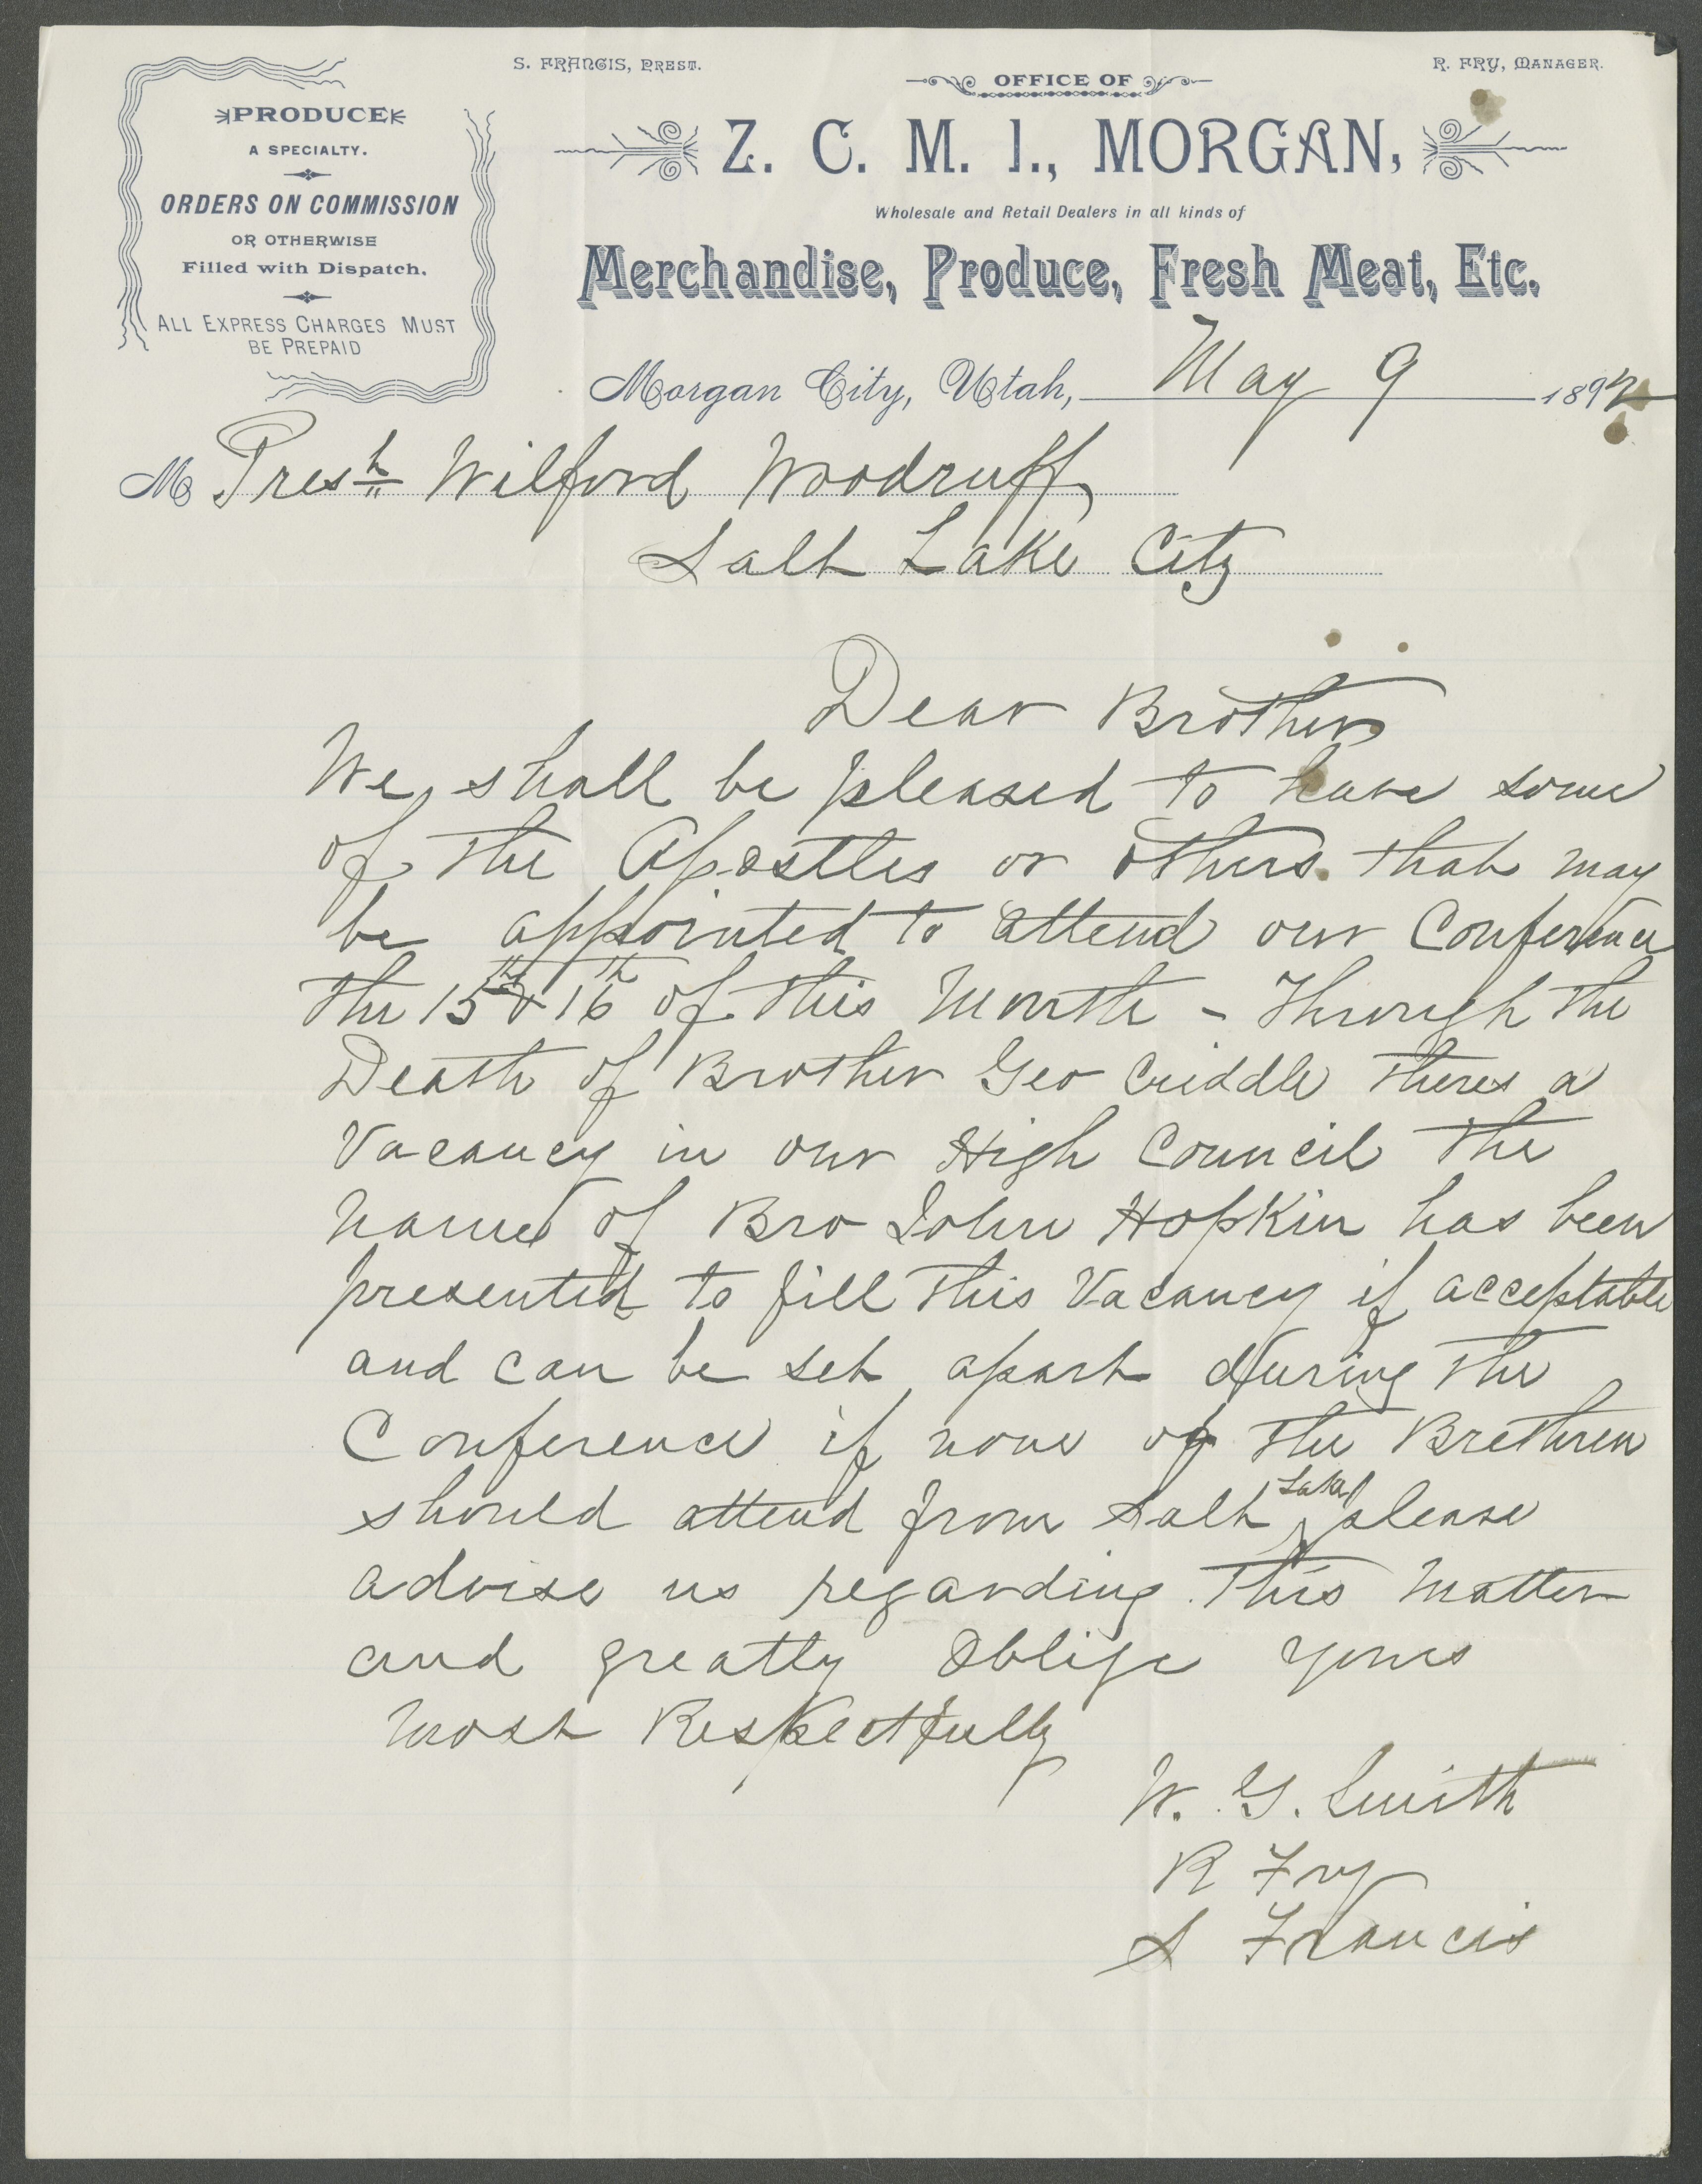 S. FRANCIS, PREST.
R. FRY, MANAGER.
PRODUCE
A SPECIALTY.
ORDERS ON COMMISSION
OR OTHERWISE
Filled with Dispatch.
ALL EXPRESS CHARGES MUST
BE PREPAID
OFFICE OF
Z. C. M. I., MORGAN,
Wholesale and Retail Dealers in all kinds of
Merchandise, Produce, Fresh Meat, Etc.
Morgan City, Utah, May 9 1892
M Prest Wilford Woodruff
Salt Lake City
Dear Brother
We shall be pleased to have some
of the Apostles or others that may
be appointed to attend our Conference
the 15th & 16th of this Month - Through the
Death of Brother Geo Criddle theres a
Vacancy in our High Council the
name of Bro John Hopkin has been
presented to fill this Vacancy if acceptable
and can be set apart during the
Conference if none of the Brethren
should attend from Salt Lake please
advise us regarding this matter
and greatly oblige yours
most Respectfully
W. G. Smith
R Fry
S Francis